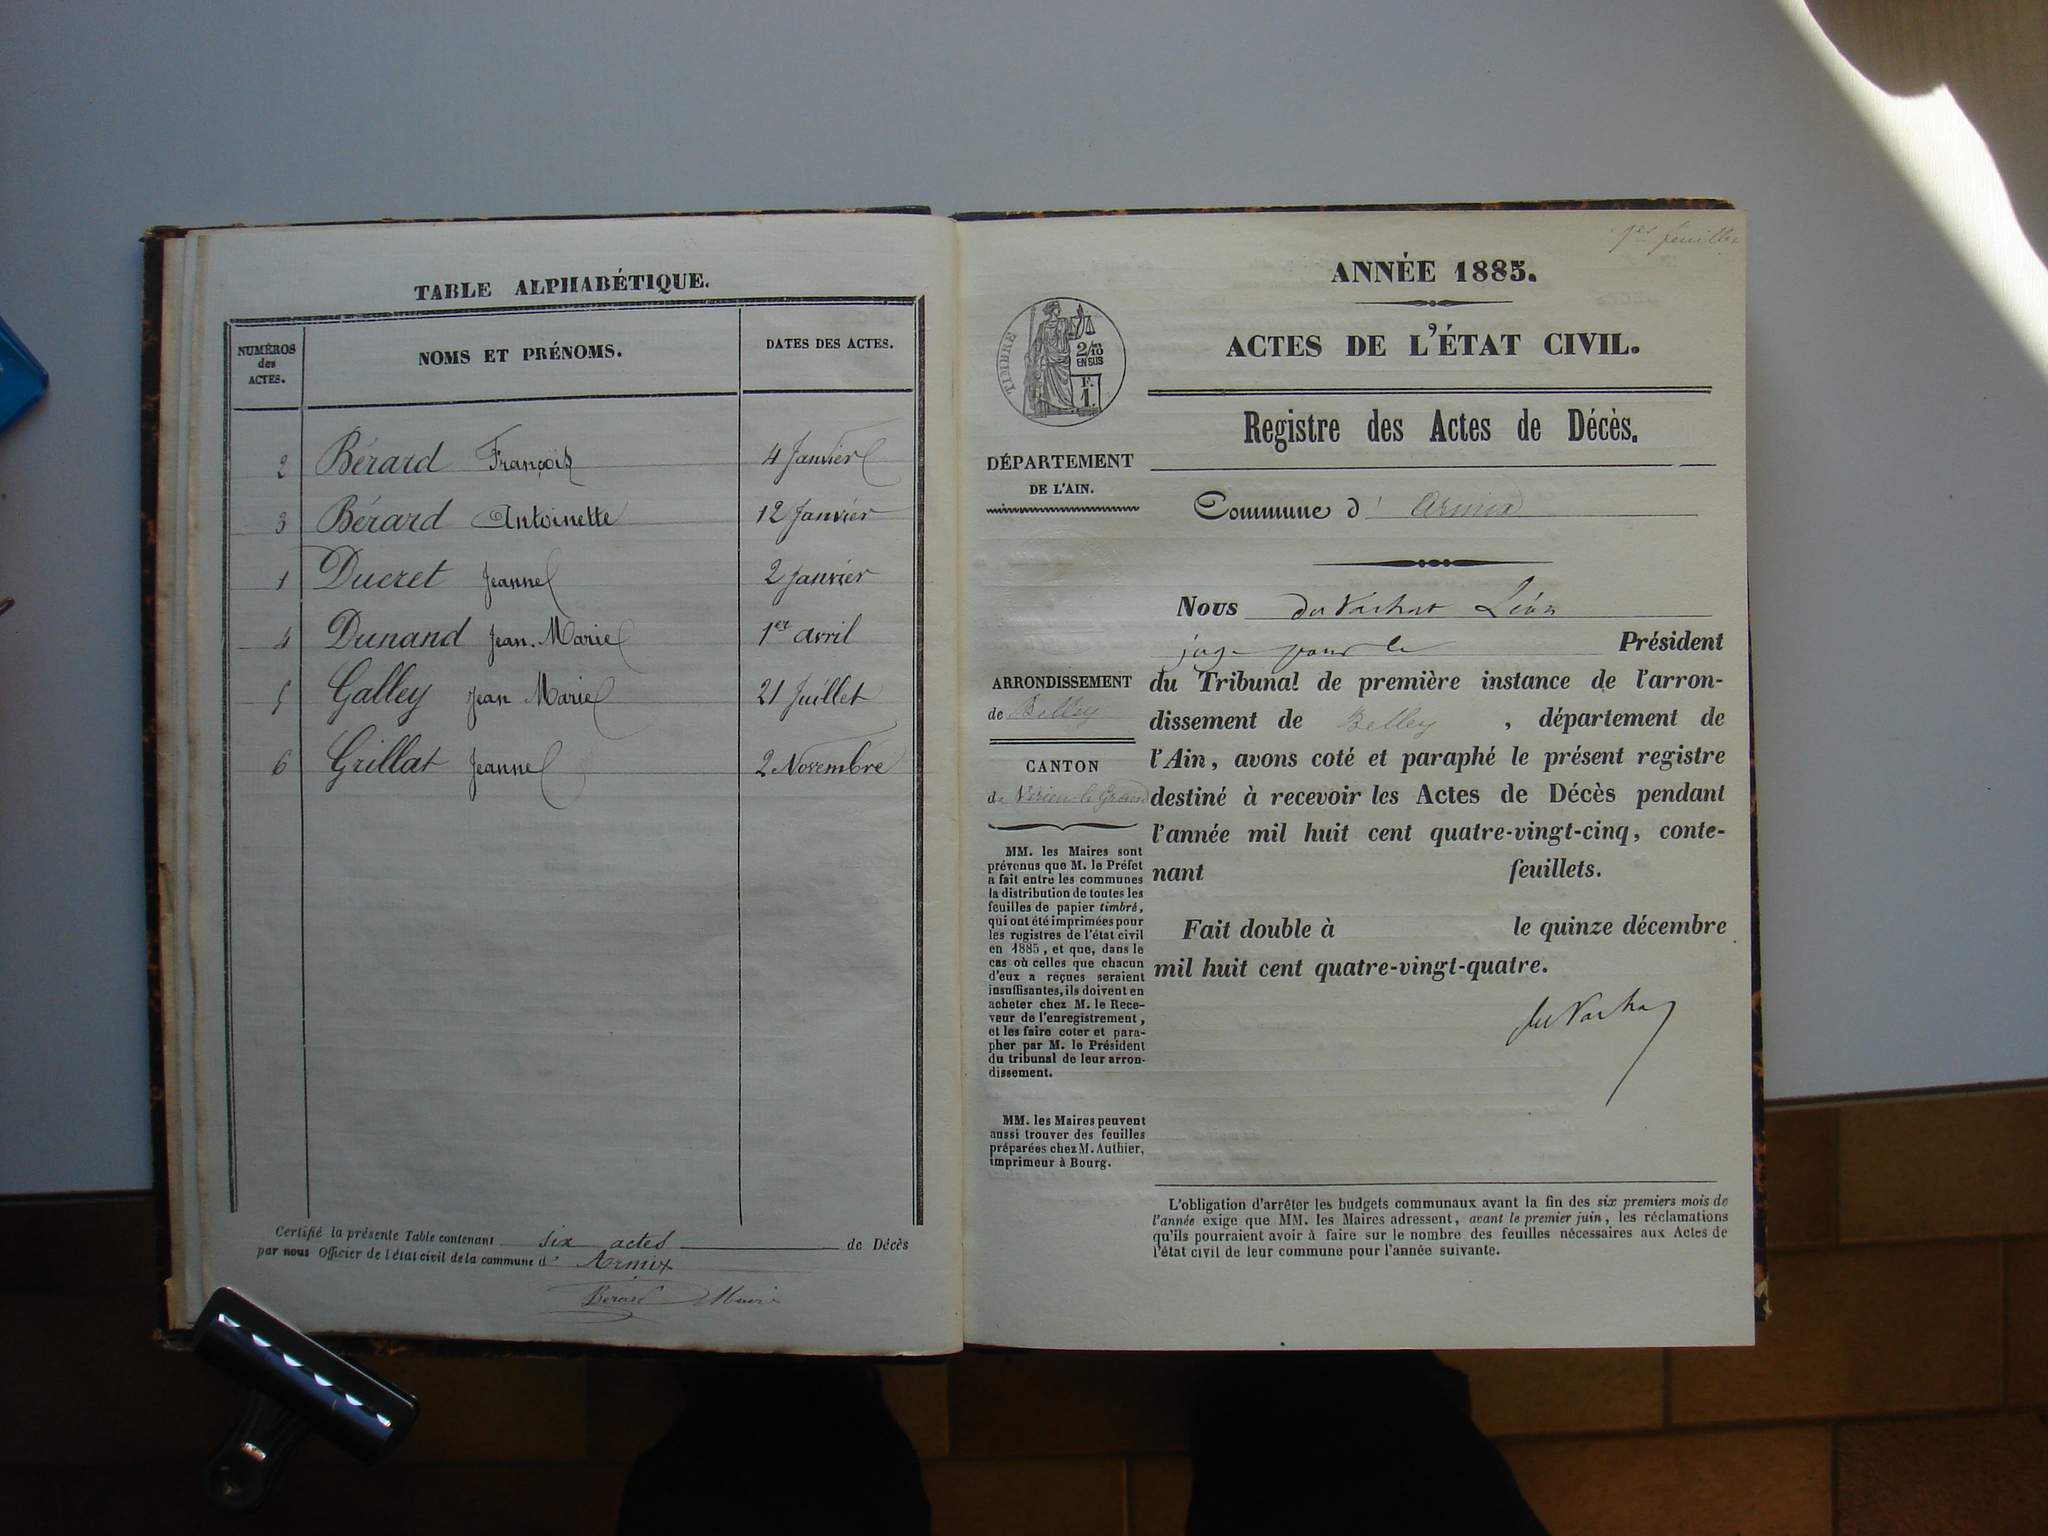 TABLE ALPHABÉTIQUE.
NUMÉROS des ACTES.
NOMS ET PRÉNOMS.
DATES DES ACTES.
2 Bérard François 4 Janvier
3 Bérard Antoinette 12 Janvier
1 Ducret Jeanne 2 Janvier
4 Dunand Jean-Marie 1er Avril
5 Galley Jean Marie 21 Juillet
6 Grillat Jeanne 2 Novembre
Certifié la présente Table contenant six actes de Décès
par nous Officier de l'état civil de la commune d' Armix
Bérard Maire
1er feuillet
ANNÉE 1885.
ACTES DE L'ÉTAT CIVIL.
Registre des Actes de Décès.
TIMBRE
2/10
EN SUS
F.
1.
DÉPARTEMENT
DE L'AIN.
ARRONDISSEMENT
de Belley
CANTON
de Virieu-le-Grand
MM. les Maires sont
prévenus que M. le Préfet
a fait entre les communes
la distribution de toutes les
feuilles de papier timbré,
qui ont été imprimées pour
les registres de l'état civil
en 1885, et que, dans le
cas où celles que chacun
d'eux a reçues seraient
insuffisantes, ils doivent en
acheter chez M. le Rece-
veur de l'enregistrement,
et les faire coter et para-
pher par M. le Président
du tribunal de leur arron-
dissement.
MM. les Maires peuvent
aussi trouver des feuilles
préparées chez M. Authier,
imprimeur à Bourg.
Commune d' Armix
Nous du Vachat Léon
juge pour le Président
du Tribunal de première instance de l'arron-
dissement de Belley, département de
l'Ain, avons coté et paraphé le présent registre
destiné à recevoir les Actes de Décès pendant
l'année mil huit cent quatre-vingt-cinq, conte-
nant feuillets.
Fait double à le quinze décembre
mil huit cent quatre-vingt-quatre.
du Vachat
L'obligation d'arrêter les budgets communaux avant la fin des six premiers mois de
l'année exige que MM. les Maires adressent, avant le premier juin, les réclamations
qu'ils pourraient avoir à faire sur le nombre des feuilles nécessaires aux Actes de
l'état civil de leur commune pour l'année suivante.